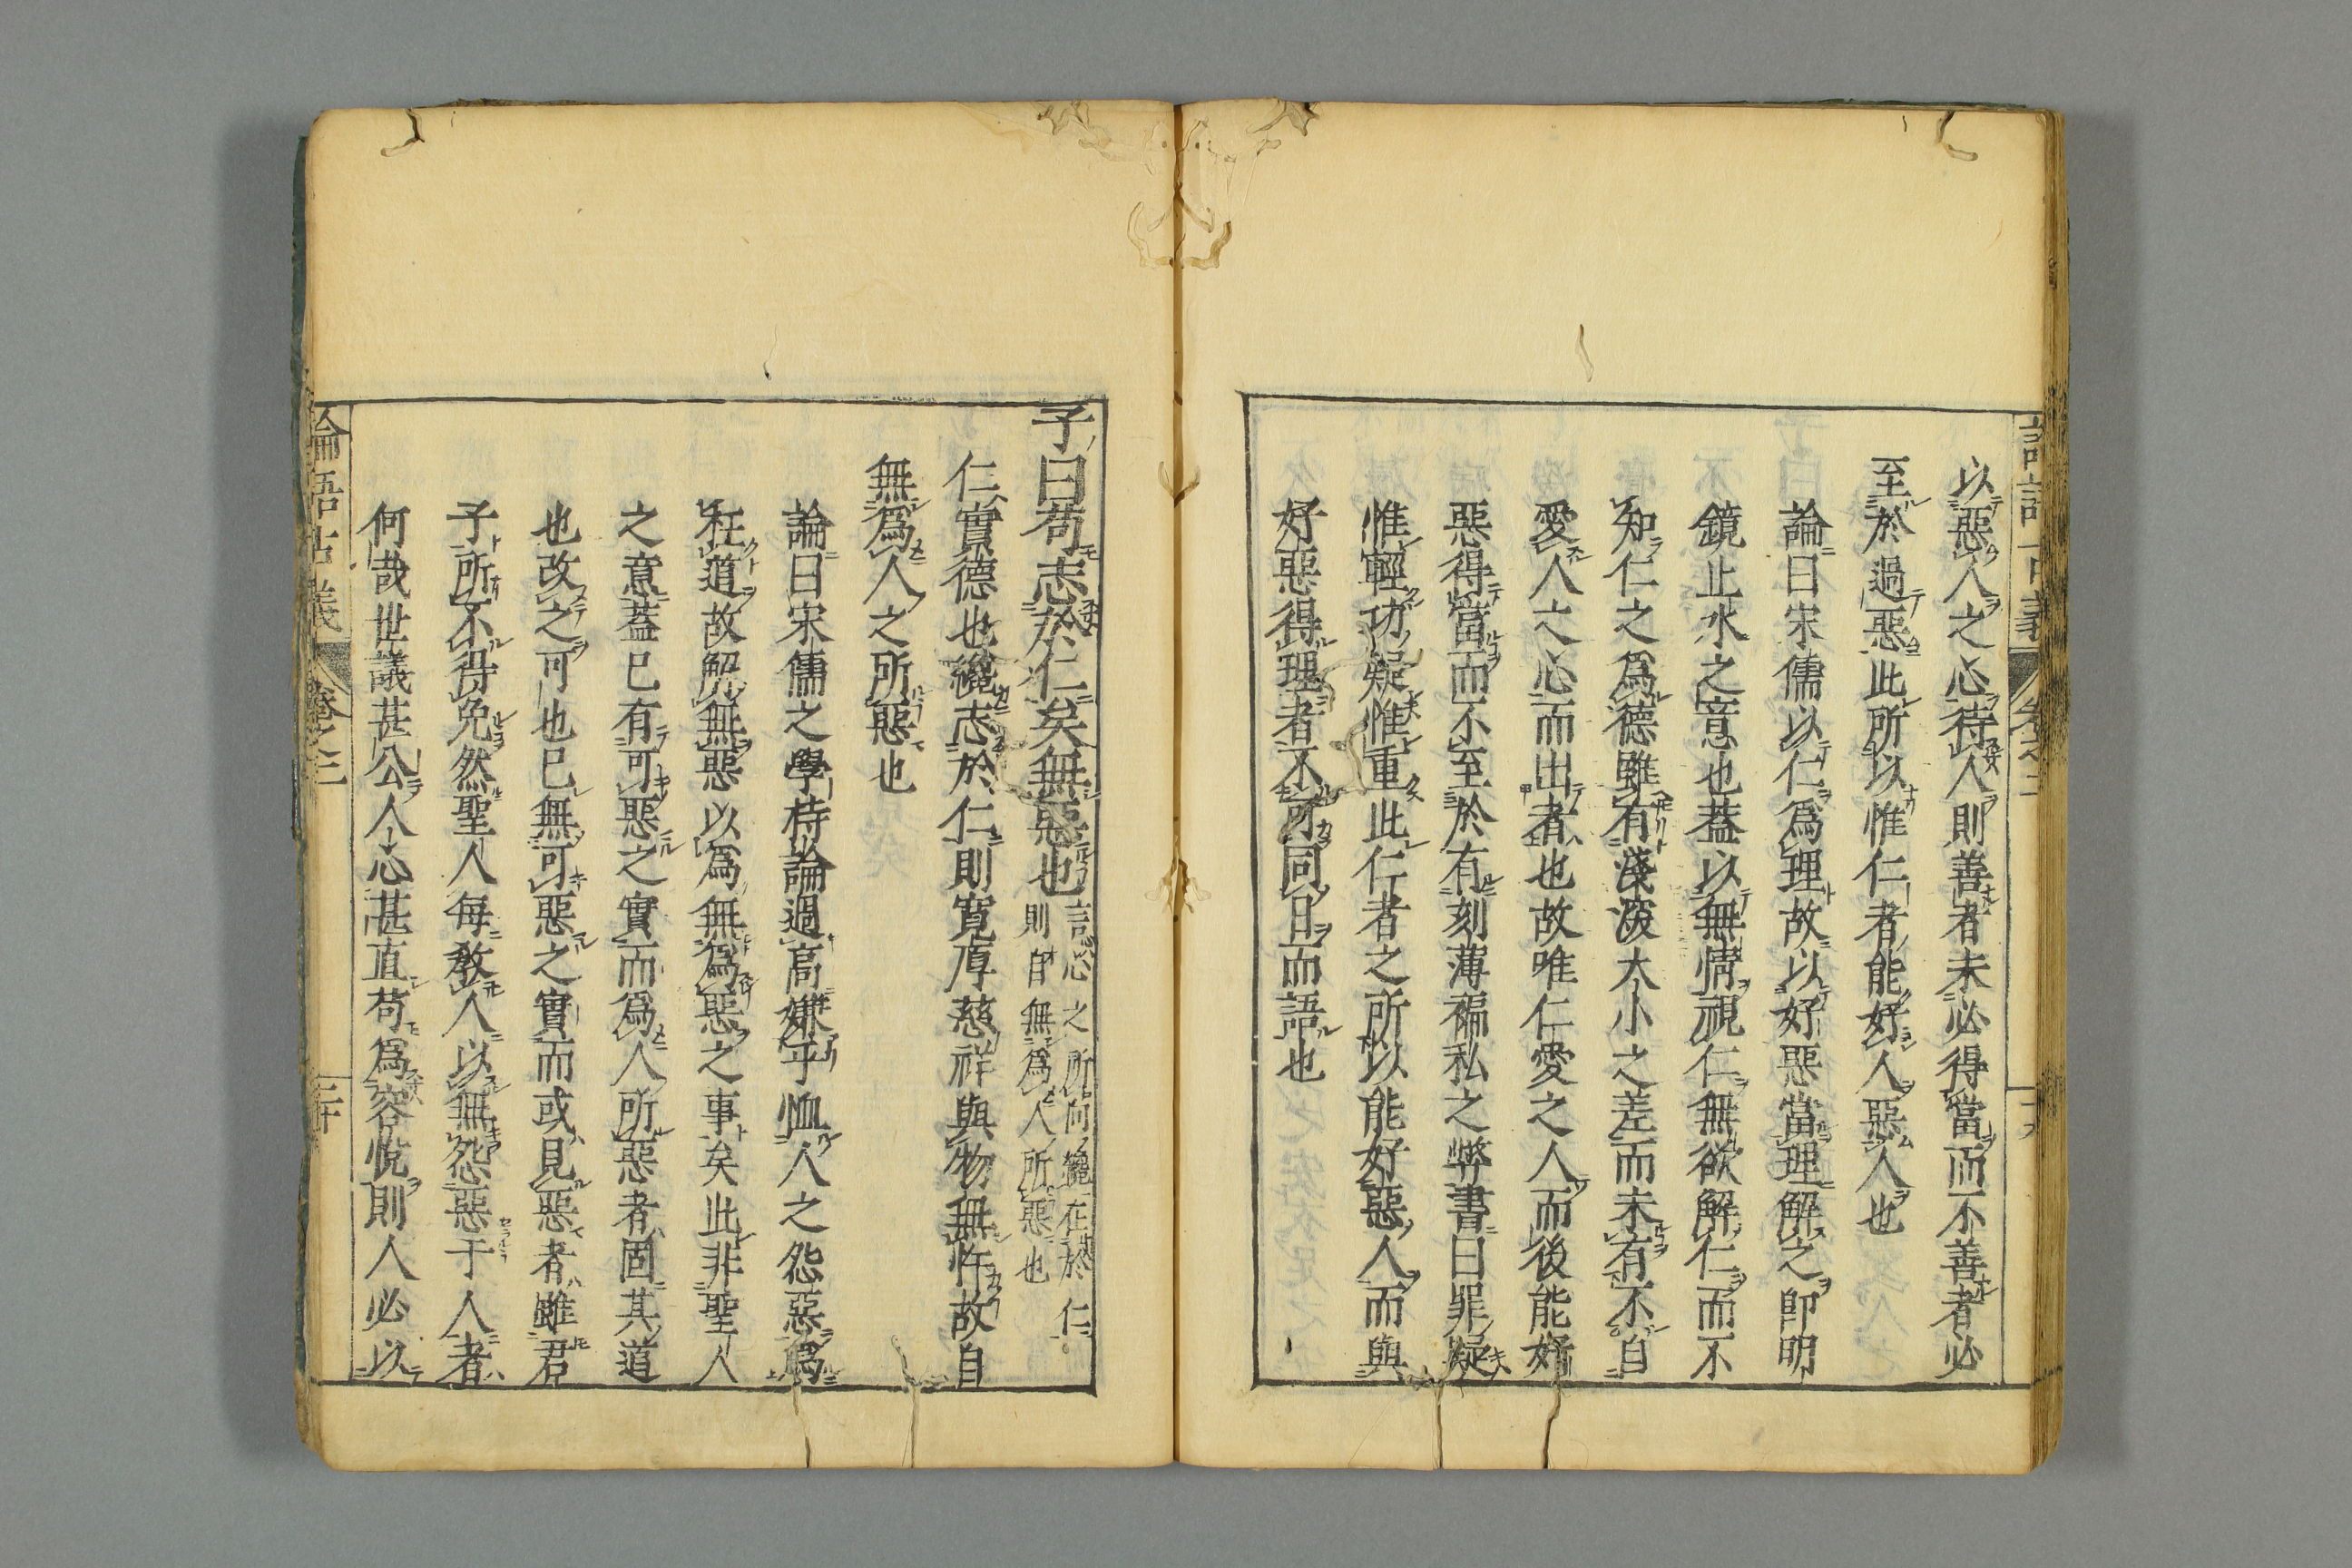 以惡人之心待人則善者未必得當而不善者必
至於過惡此所以惟仁者能好人惡人也
論曰宋儒以仁爲理故以好惡當理解之卽明
鏡止水之意也蓋以無情視仁無欲解仁而不
知仁之爲德雖有淺深大小之差而未有不自
愛人之心而出者也故唯仁愛之人而後能好
惡得當而不至於有刻薄褊私之弊書曰罪疑
惟輕功疑惟重此仁者之所以能好惡人而與
好惡得理者不可同日而語也
子曰苟志於仁矣無惡也
言心之所向纔在於仁
則自無爲人所惡也
仁實德也纔志於仁則寬厚慈祥與物無忤故自
無爲人之所惡也
論曰宋儒之學持論過高嫌乎恤人之怨惡爲
枉道故解無惡以爲無爲惡之事矣此非聖人
之意蓋已有可惡之實而爲人所惡者固其道
也改之可也已無可惡之實而或見惡者雖君
子所不得免然聖人每敎人以無怨惡于人者
何哉世議甚公人心甚直苟爲容悅則人必以
論語古義
卷之二
二十